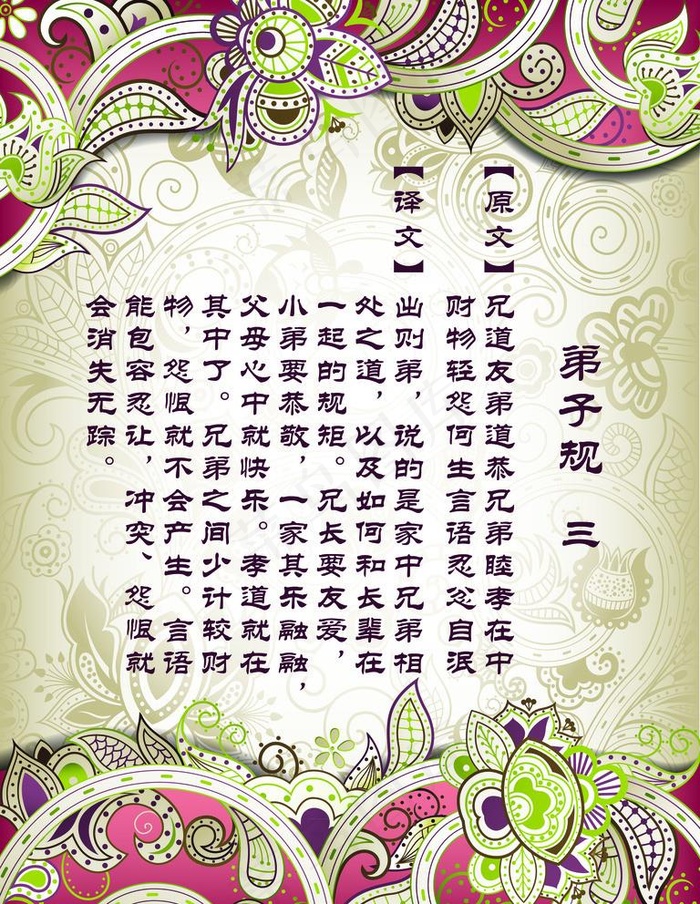 弟子规 三
【原文】兄道友弟道恭兄弟睦孝在中
财物轻怨何生言语忍忿自泯
【译文】出则弟，说的是家中兄弟相
处之道，以及如何和长辈在
一起的规矩。兄长要友爱，
小弟要恭敬，一家其乐融融，
父母心中就快乐。孝道就在
其中了。兄弟之间少计较财
物，怨恨就不会产生。言语
能包容忍让，冲突、怨恨就
会消失无踪。